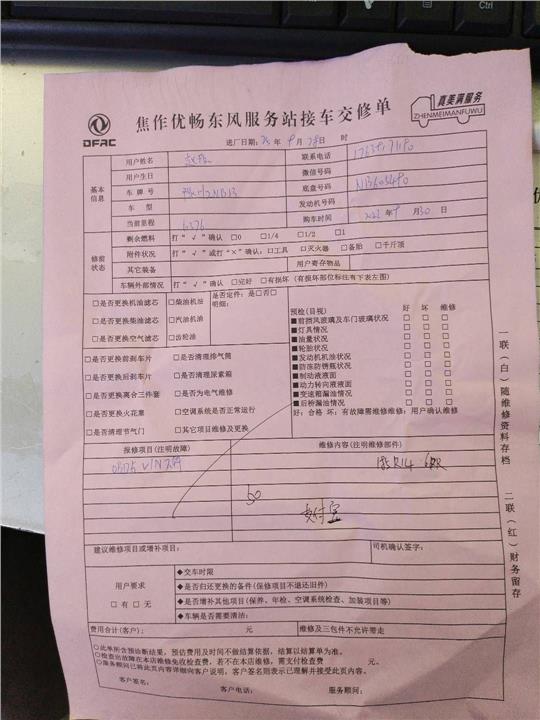 Ctrl
DFAC
焦作优畅东风服务站接车交修单
真美满服务
ZHENMEIMANFUWU
进厂日期: 25 年 9 月 28 日 时
基本信息
用户姓名
联系电话
用户生日
微信号码
车牌号
底盘号码
车型
发动机号码
当前里程 6376
购车时间 年 9 月 30 日
修前状态
剩余燃料 打“√”确认 □0 □1/4 □1/2 □1
附件状况 打“√”或打“×”确认:□工具 □灭火器 □备胎 □千斤顶
其它装备
用户寄存物品
车辆外部情况 打“√”确认 □完好 □有损坏(有损坏部位标注有下表左图)
□是否更换机油滤芯 □柴油机油
是否定件: 是□否□
明细:
□是否更换柴油滤芯 □汽油机油
□是否更换空气滤芯 □齿轮油
□是否更换前刹车片 □是否清理排气筒
□是否更换后刹车片 □是否清理尿素箱
□是否更换离合三件套 □是否为电气维修
□是否更换火花塞 □空调系统是否正常运行
□是否清理节气门 □其它项目维修及更换
预检(目视) 好 坏 维修
■前挡风玻璃及车门玻璃状况 □ □ □
■灯具情况 □ □ □
■油量状况 □ □ □
■轮胎状况 □ □ □
■发动机机油状况 □ □ □
■防冻防锈瓶状况 □ □ □
■制动液液面 □ □ □
■动力转向液液面 □ □ □
■变速箱漏油情况 □ □ □
■后桥漏油情况 □ □ □
好: 合格 坏: 有故障需维修维修: 用户确认维修
报修项目(注明故障)
维修内容(注明维修部件)
185R14
50
支付宝
建议维修项目或增补项目:
司机确认签字:
用户要求
□ 有 □ 无
◆交车时限
◆是否归还更换的备件(保修项目不退还旧件)
◆是否增补其他项目(保养、年检、空调系统检查、加装项目等)
◆车辆是否需要清洁:
费用合计(客户): 元 维修及三包件不允许带走
○此单所含预诊断结果,预估费用及时间不做结算依据,结算以结算单为准。
○检查出故障在本店维修免收检查费,若不在本店维修,需支付检查费 元。
○服务顾问已将此页内容详细向客户说明,客户签名则表示已理解并接受此页内容。
客户签名: 客户电话: 服务顾问:
一联(白)随维修资料存档
二联(红)财务留存